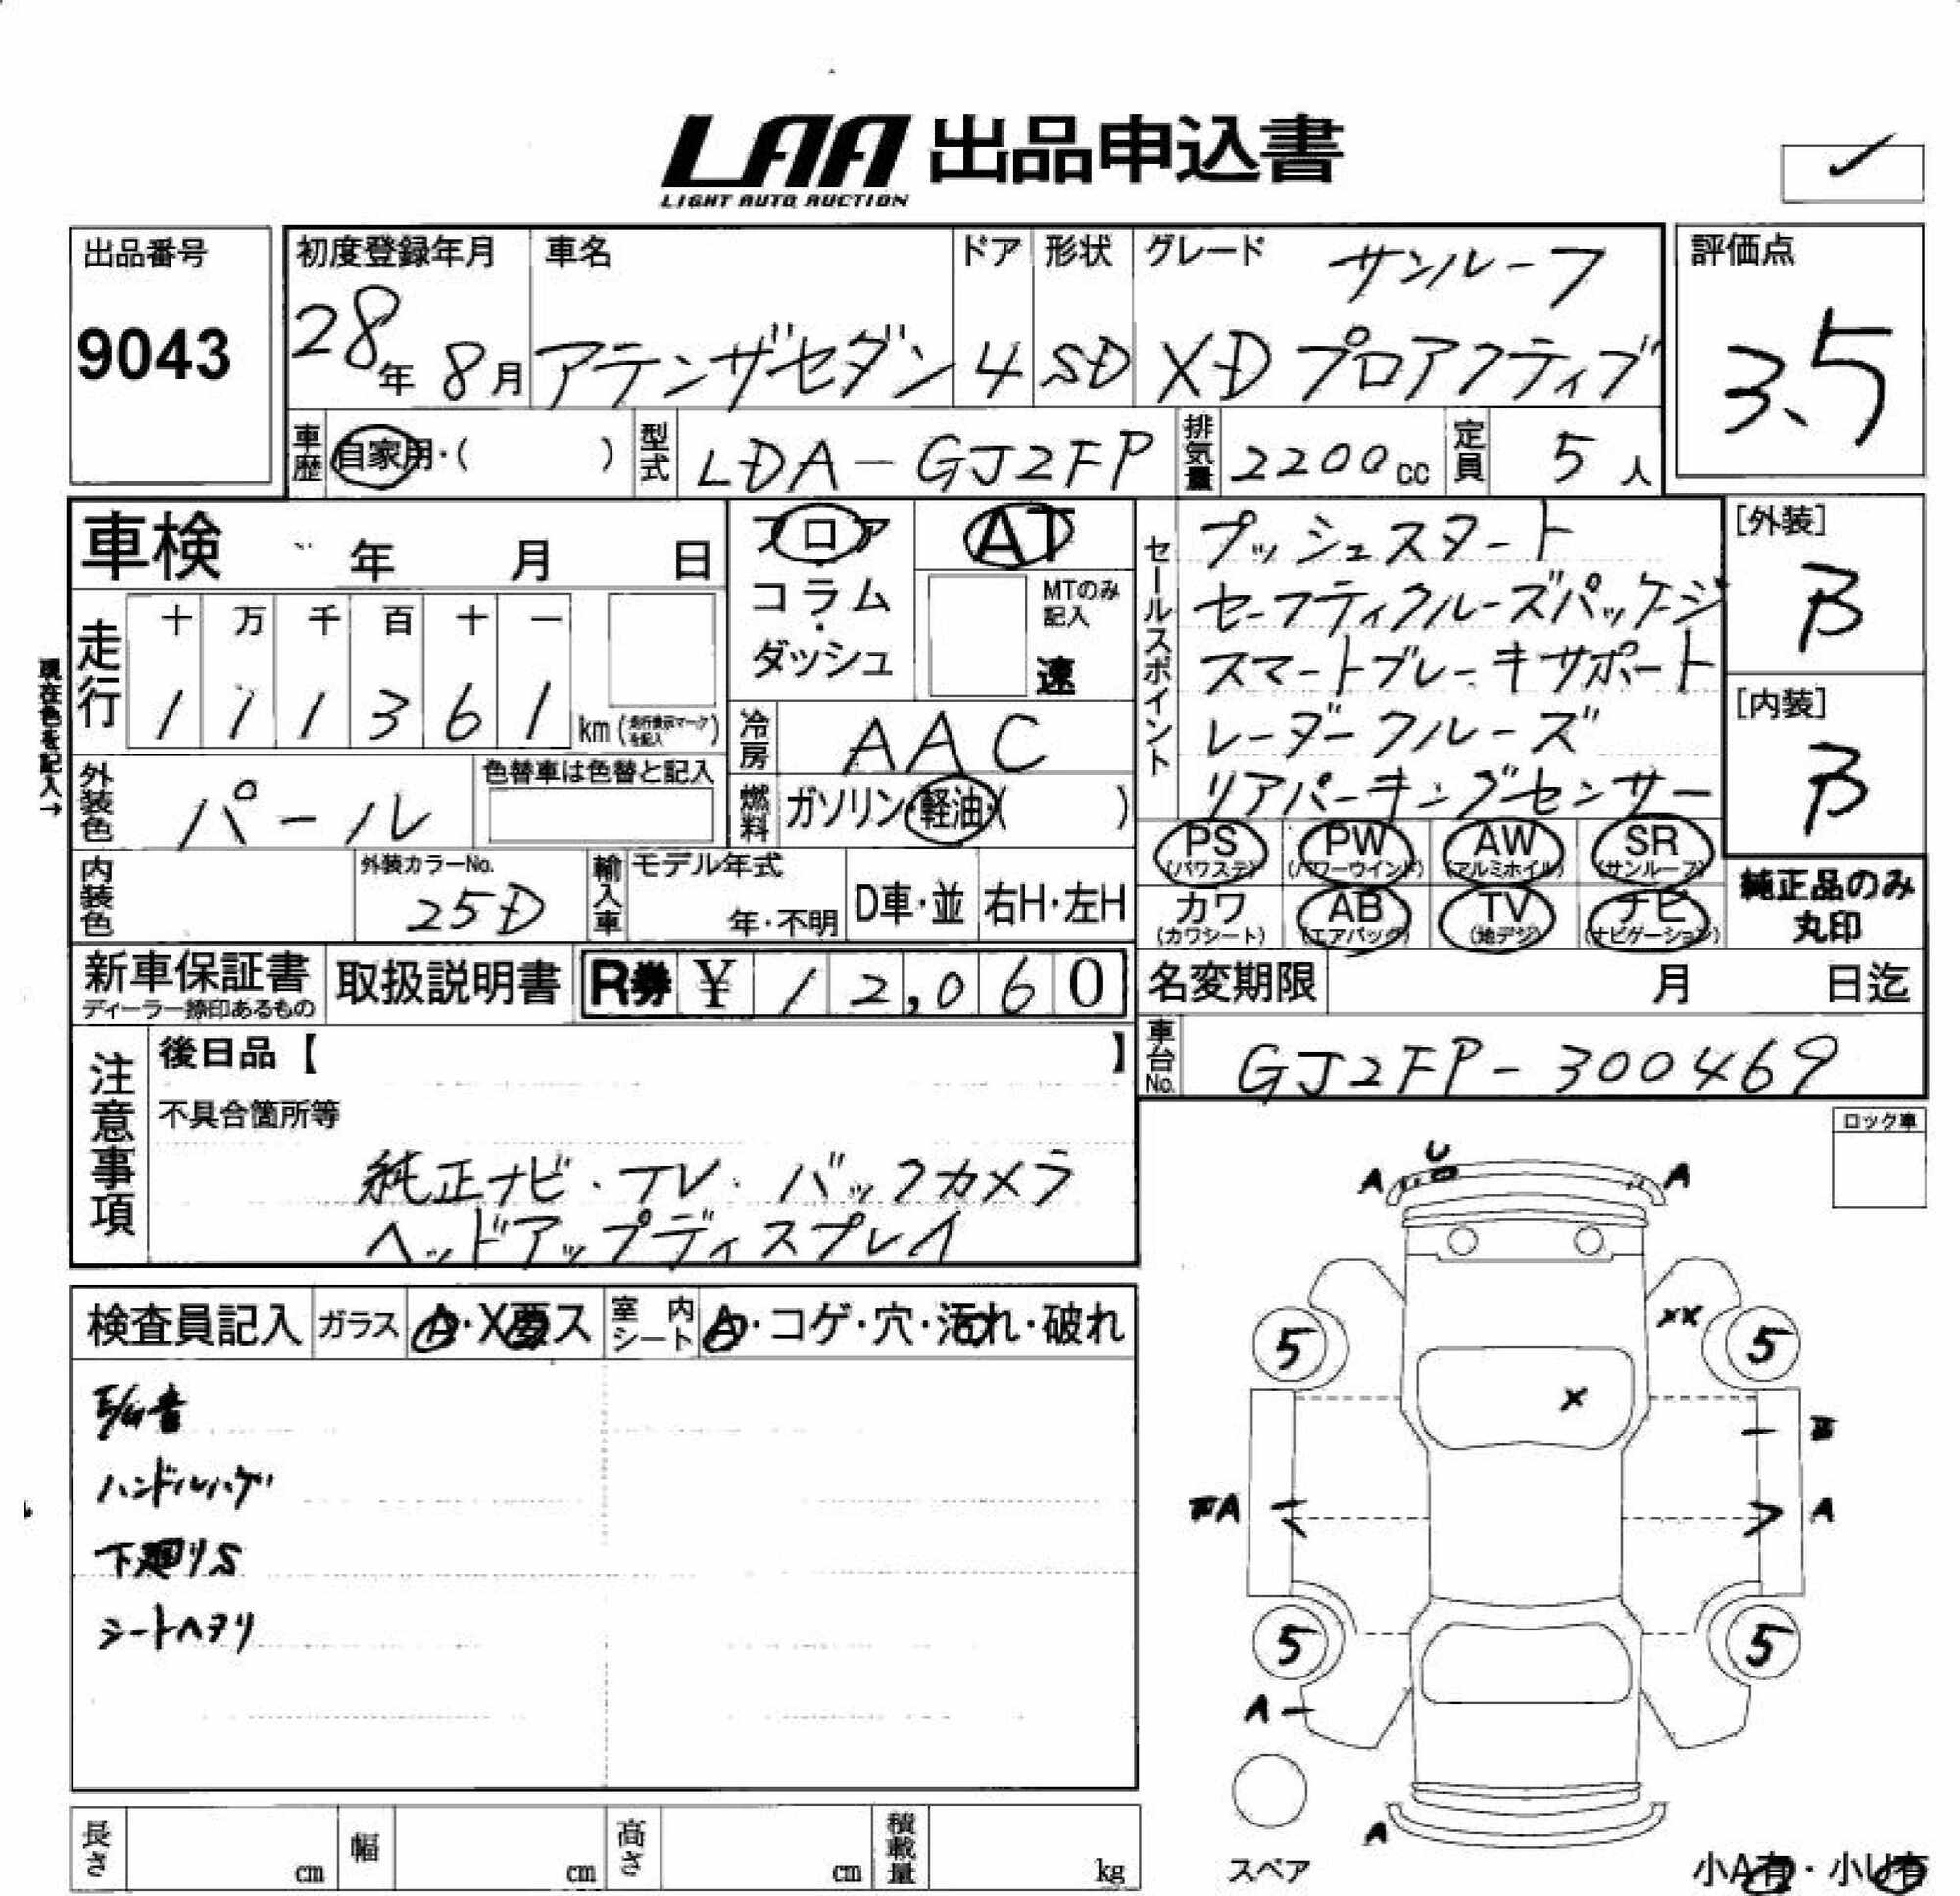 LAA 出品申込書
LIGHT AUTO AUCTION
出品番号
9043
初度登録年月
28年 8月
車名
アテンザセダン
ドア
4
形状
SD
グレード サンルーフ
XD プロアクティブ
評価点
3.5
車歴 自家用・( )
型式 LDA-GJ2FP
排気量 2200cc
定員 5人
車検 年 月 日
フロア
コラム・
ダッシュ
AT
MTのみ
記入
速
セールスポイント
プッシュスタート
セーフティクルーズパッケージ
スマートブレーキサポート
レーダークルーズ
リアパーキングセンサー
[外装]
B
[内装]
B
走行
十 万 千 百 十 一
1 1 1 3 6 1 km (走行表示マークを記入)
現在色を記入→
冷房 AAC
外装色 パール
色替車は色替と記入
燃料 ガソリン・軽油・( )
PS (パワステ)
PW (パワーウインド)
AW (アルミホイル)
SR (サンルーフ)
カワ (カワシート)
AB (エアバック)
TV (地デジ)
ナビ (ナビゲーション)
純正品のみ
丸印
内装色
外装カラーNo.
25D
輸入車 モデル年式
年・不明
D車・並
右H・左H
新車保証書
ディーラー捺印あるもの
取扱説明書
R券 ¥ 12,060
名変期限 月 日迄
車台No. GJ2FP-300469
注意事項
後日品【 】
不具合箇所等
純正ナビ・TV・バックカメラ
ヘッドアップディスプレイ
ロック車
検査員記入
ガラス A・X要ス
室内シート A・コゲ・穴・汚れ・破れ
ハンドルハゲ
下廻りS
シートヘタリ
U
A A
XX
5 5
X
A A
5 5
A
A
スペア
小A有・小U有
長さ cm
幅 cm
高さ cm
積載量 kg